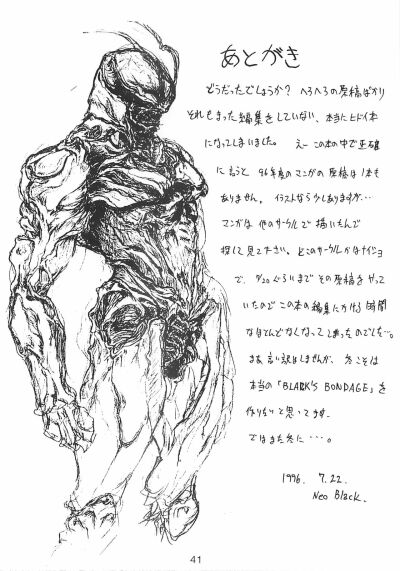 あとがき
どうだったでしょうか? へろへろの原稿ばかり
それもまった 編集をしていない、本当にヒドイ本
になってしまいました。 えー この本の中で正確
に言うと 96年度のマンガの原稿は1本も
ありません。イラストなら少しありますが…
マンガは 他のサークルで 描いたんで
探して見て下さい。どこのサークルかはナイショ
で、7/20ぐらいまで その原稿をやって
いたので この本の編集にかける 時間
なほとんどなくなって しまったのでした…。
まあ、言い訳はしませんが、冬こそは
本当の「BLARK'S BONDAGE」を
作りたいと思ってます。
ではまた冬に…。
1996. 7.22.
Neo Black.
41